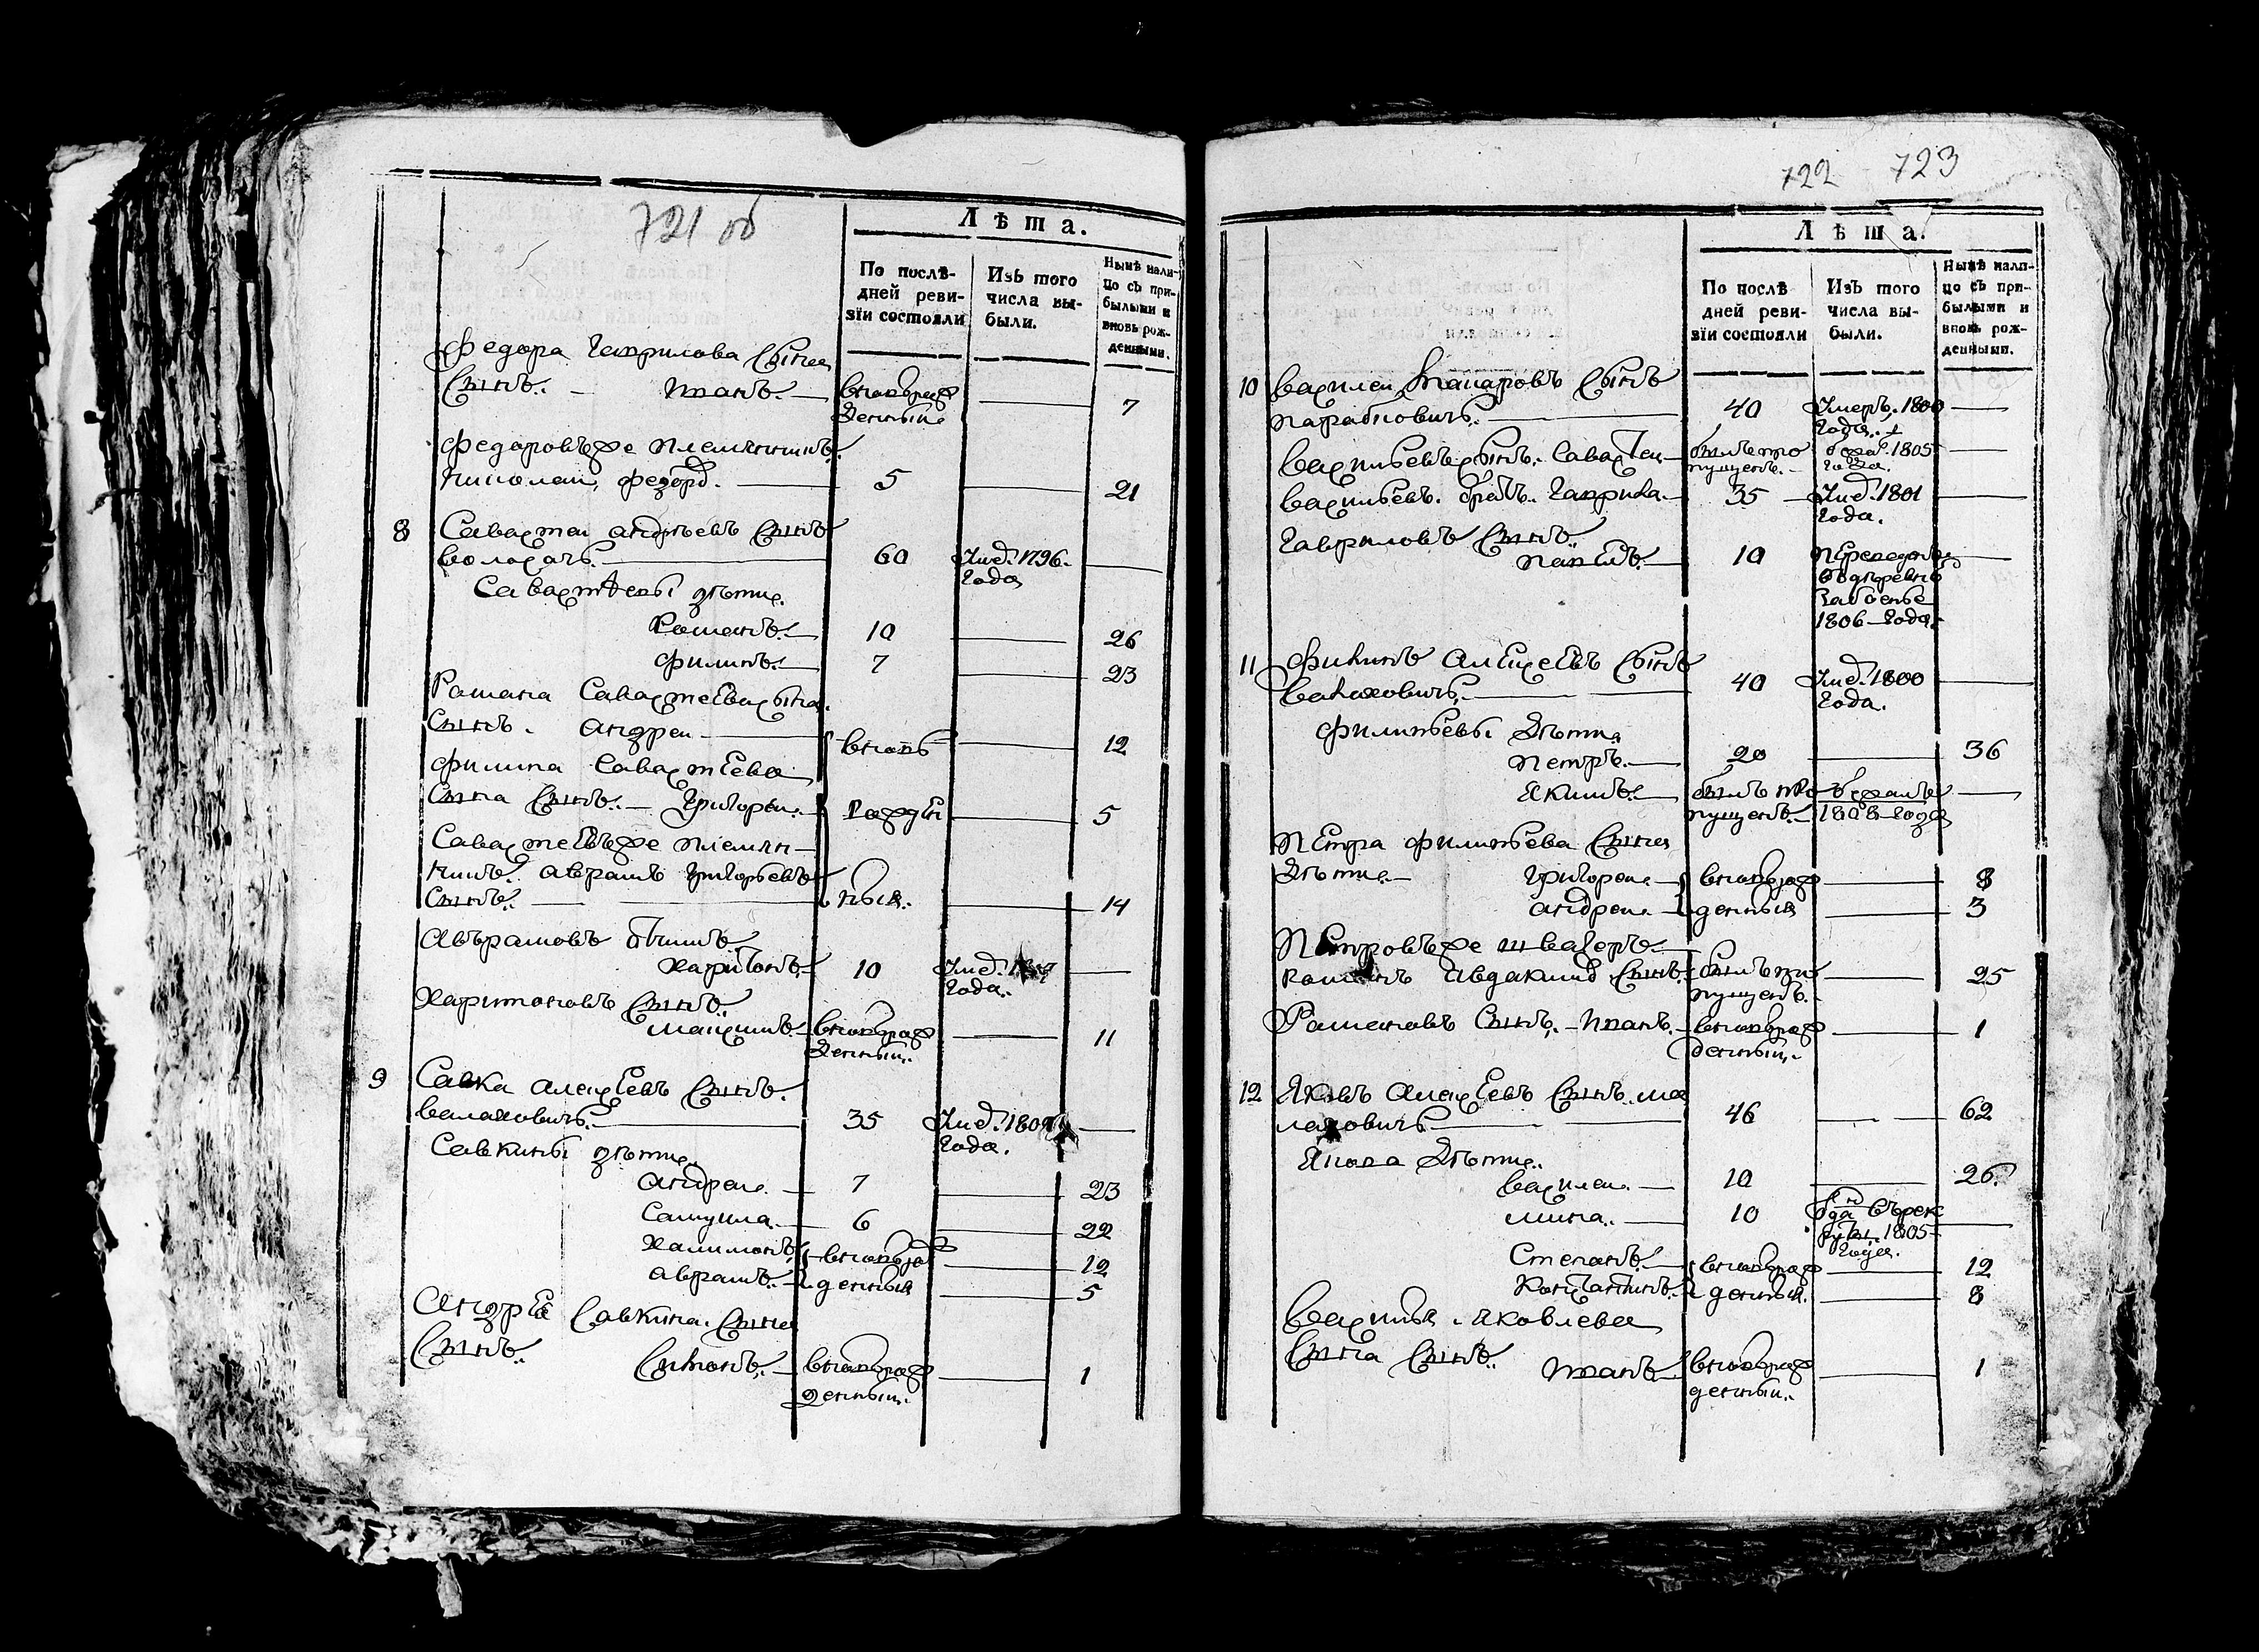 721 об
Лѣта.
По послѣ-
дней реви-
зіи состояли
Изъ того
числа вы-
были.
Нынѣ нали-
цо съ при-
былыми и
вновь рож-
денными.
Федора Гаврилова Сына
Сынъ. — Иванъ. вновьрож 7
денный
Федоровъже племянникъ
Николай, Федоръ. 5 21
8 Савастей андрѣевъ Сынъ
60 Умер. 1796.
года
Савастеевы дѣти.
Романъ. 10 26
Филипъ. 7 23
Романа Савастеева сына
Сынъ. андреи 12
вновь
Филипа Савастеева
Сына Сынъ. — Григореи. рожден 5
Савастеевъже племян-
никъ. аврамъ Григорьевъ
Сынъ. ныя. 14
Авърамовъ отчимъ.
Харитонъ 10 Умер.
года.
Харитоновъ Сынъ.
Максимъ вновьрож 11
денный.
9 Савка алексѣевъ Сынъ.
Валаховичъ. 35 Умер.
года.
Савкины дѣти.
андреи. 7 23
Самуила. 6 22
Халимонъ вновьрож 12
аврамъ. денныя 5
Андрея Савкина. Сына
Сынъ.
вновьрож 1
денный.
722 723
Лѣта.
По послѣ
дней реви-
зіи состояли
Изъ того
числа вы-
были.
Нынѣ нали-
цо съ при-
былыми и
вновь рож-
денными.
10 василеи Макаровъ Сынъ
40 Умеръ. 1800
года.
васильевъ сынъ. Савастеи былъ про 1805
пущенъ. года.
васильевъ. братъ. Гаврила. 35 Умер. 1801
года.
Гавриловъ Сынъ.
Павелъ. 10
1806 года.
11 Филипъ алексеевъ Сынъ
Валаховичъ. 40 Умер. 1800
года.
Филипьевы Дѣти
Петръ. 20 36
Якимъ. былъ про
пущенъ. года
Петра Филипьева Сына
Дѣти Григореи вновьрож 8
андреи. денныя 3
Петровъже швагеръ
романъ Сынъ. былъ про 25
пущенъ.
Романовъ Сынъ. Иванъ. вновьрож 1
денный.
12 Яковъ алексеевъ Сынъ. ма
лаховичъ 46 62
Якова Дѣти.
василеи. 10 26
мина. 10
1805
года.
Степанъ. вновьрож 12
Константинъ. денныя. 8
василья Яковлева
Сына Сынъ. Иванъ вновьрож 1
денный.